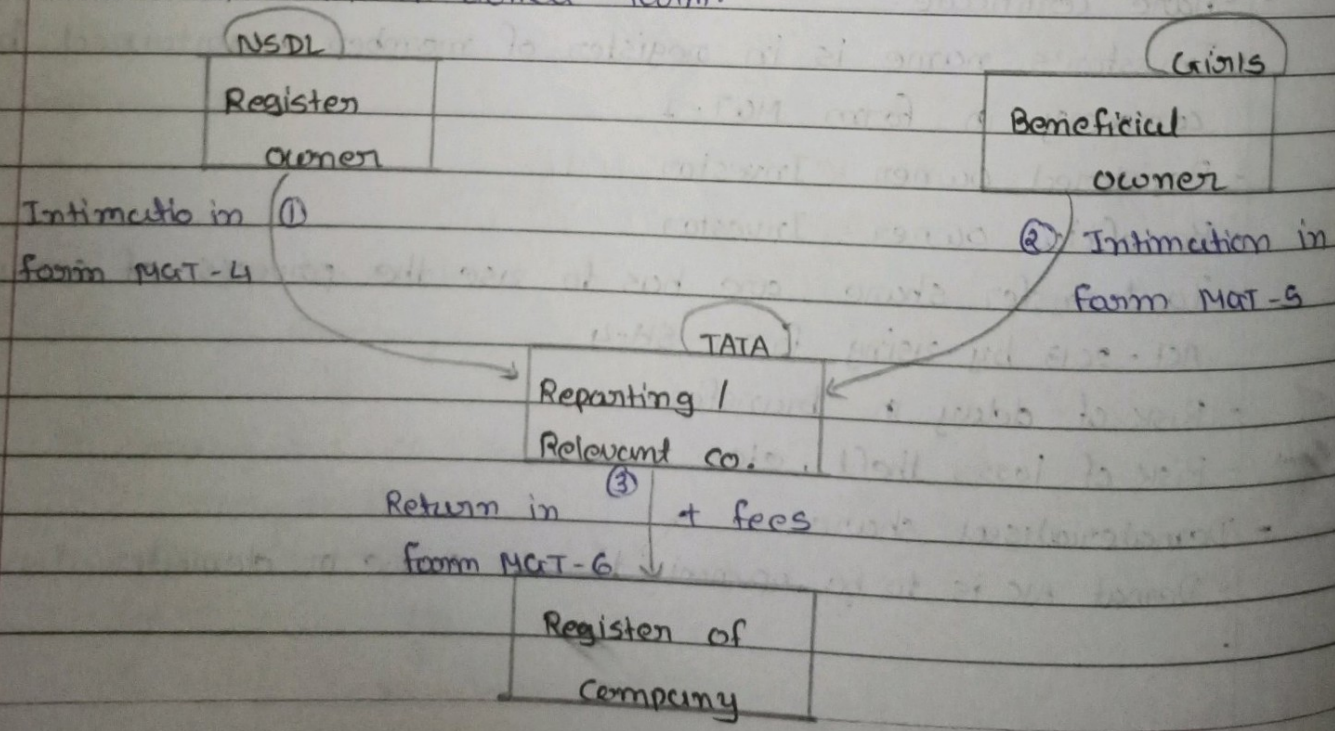 NSDL
Girls
Register
owner
Beneficial
owner
Intimatio in ①
form MGT-4
② Intimation in
form MGT-5
TATA
Reporting /
Relevant co.
③
Return in + fees
form MGT-6
Register of
Company